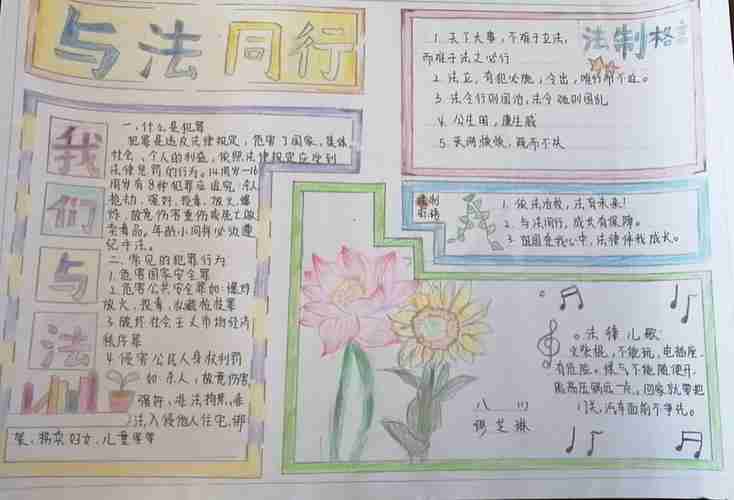 与法同行
法制格言
1. 天下大事,不难于立法,
而难于法之必行
2. 法立,有犯必施,令出,唯行而不返。
3. 法令行则国治,法令弛则国乱
4. 公生明,廉生威
5. 天网恢恢,疏而不失
我们与法
一、什么是犯罪
犯罪是违反法律规定,危害了国家、集体
社会、个人的利益,依照法律规定应受到
法律惩罚的行为。14周岁—16
周岁有8种犯罪应追究:杀人
抢劫、强奸、投毒、放火、爆
炸、故意伤害重伤或死亡
卖毒品。年龄小同样必须遵
纪守法。
二、常见的犯罪行为
1. 危害国家安全罪
2. 危害公共安全罪如:爆炸
放火、投毒、私藏枪枝罪
3. 破坏社会主义市场经济
秩序罪
4. 侵害公民人身权利罚
如:杀人、故意伤害
强奸、非法拘禁、非
法入侵他人住宅、绑
架、拐卖妇女、儿童罪等
法制
1. 依法治校,法育未来!
2. 与法同行,成长有保障。
3. 祖国在我心中,法律伴我成长。
法律儿歌
不能玩,电插座
有危险。煤气不能随便开
高压锅远一点。回家就带把
门关,汽车面前不争先。